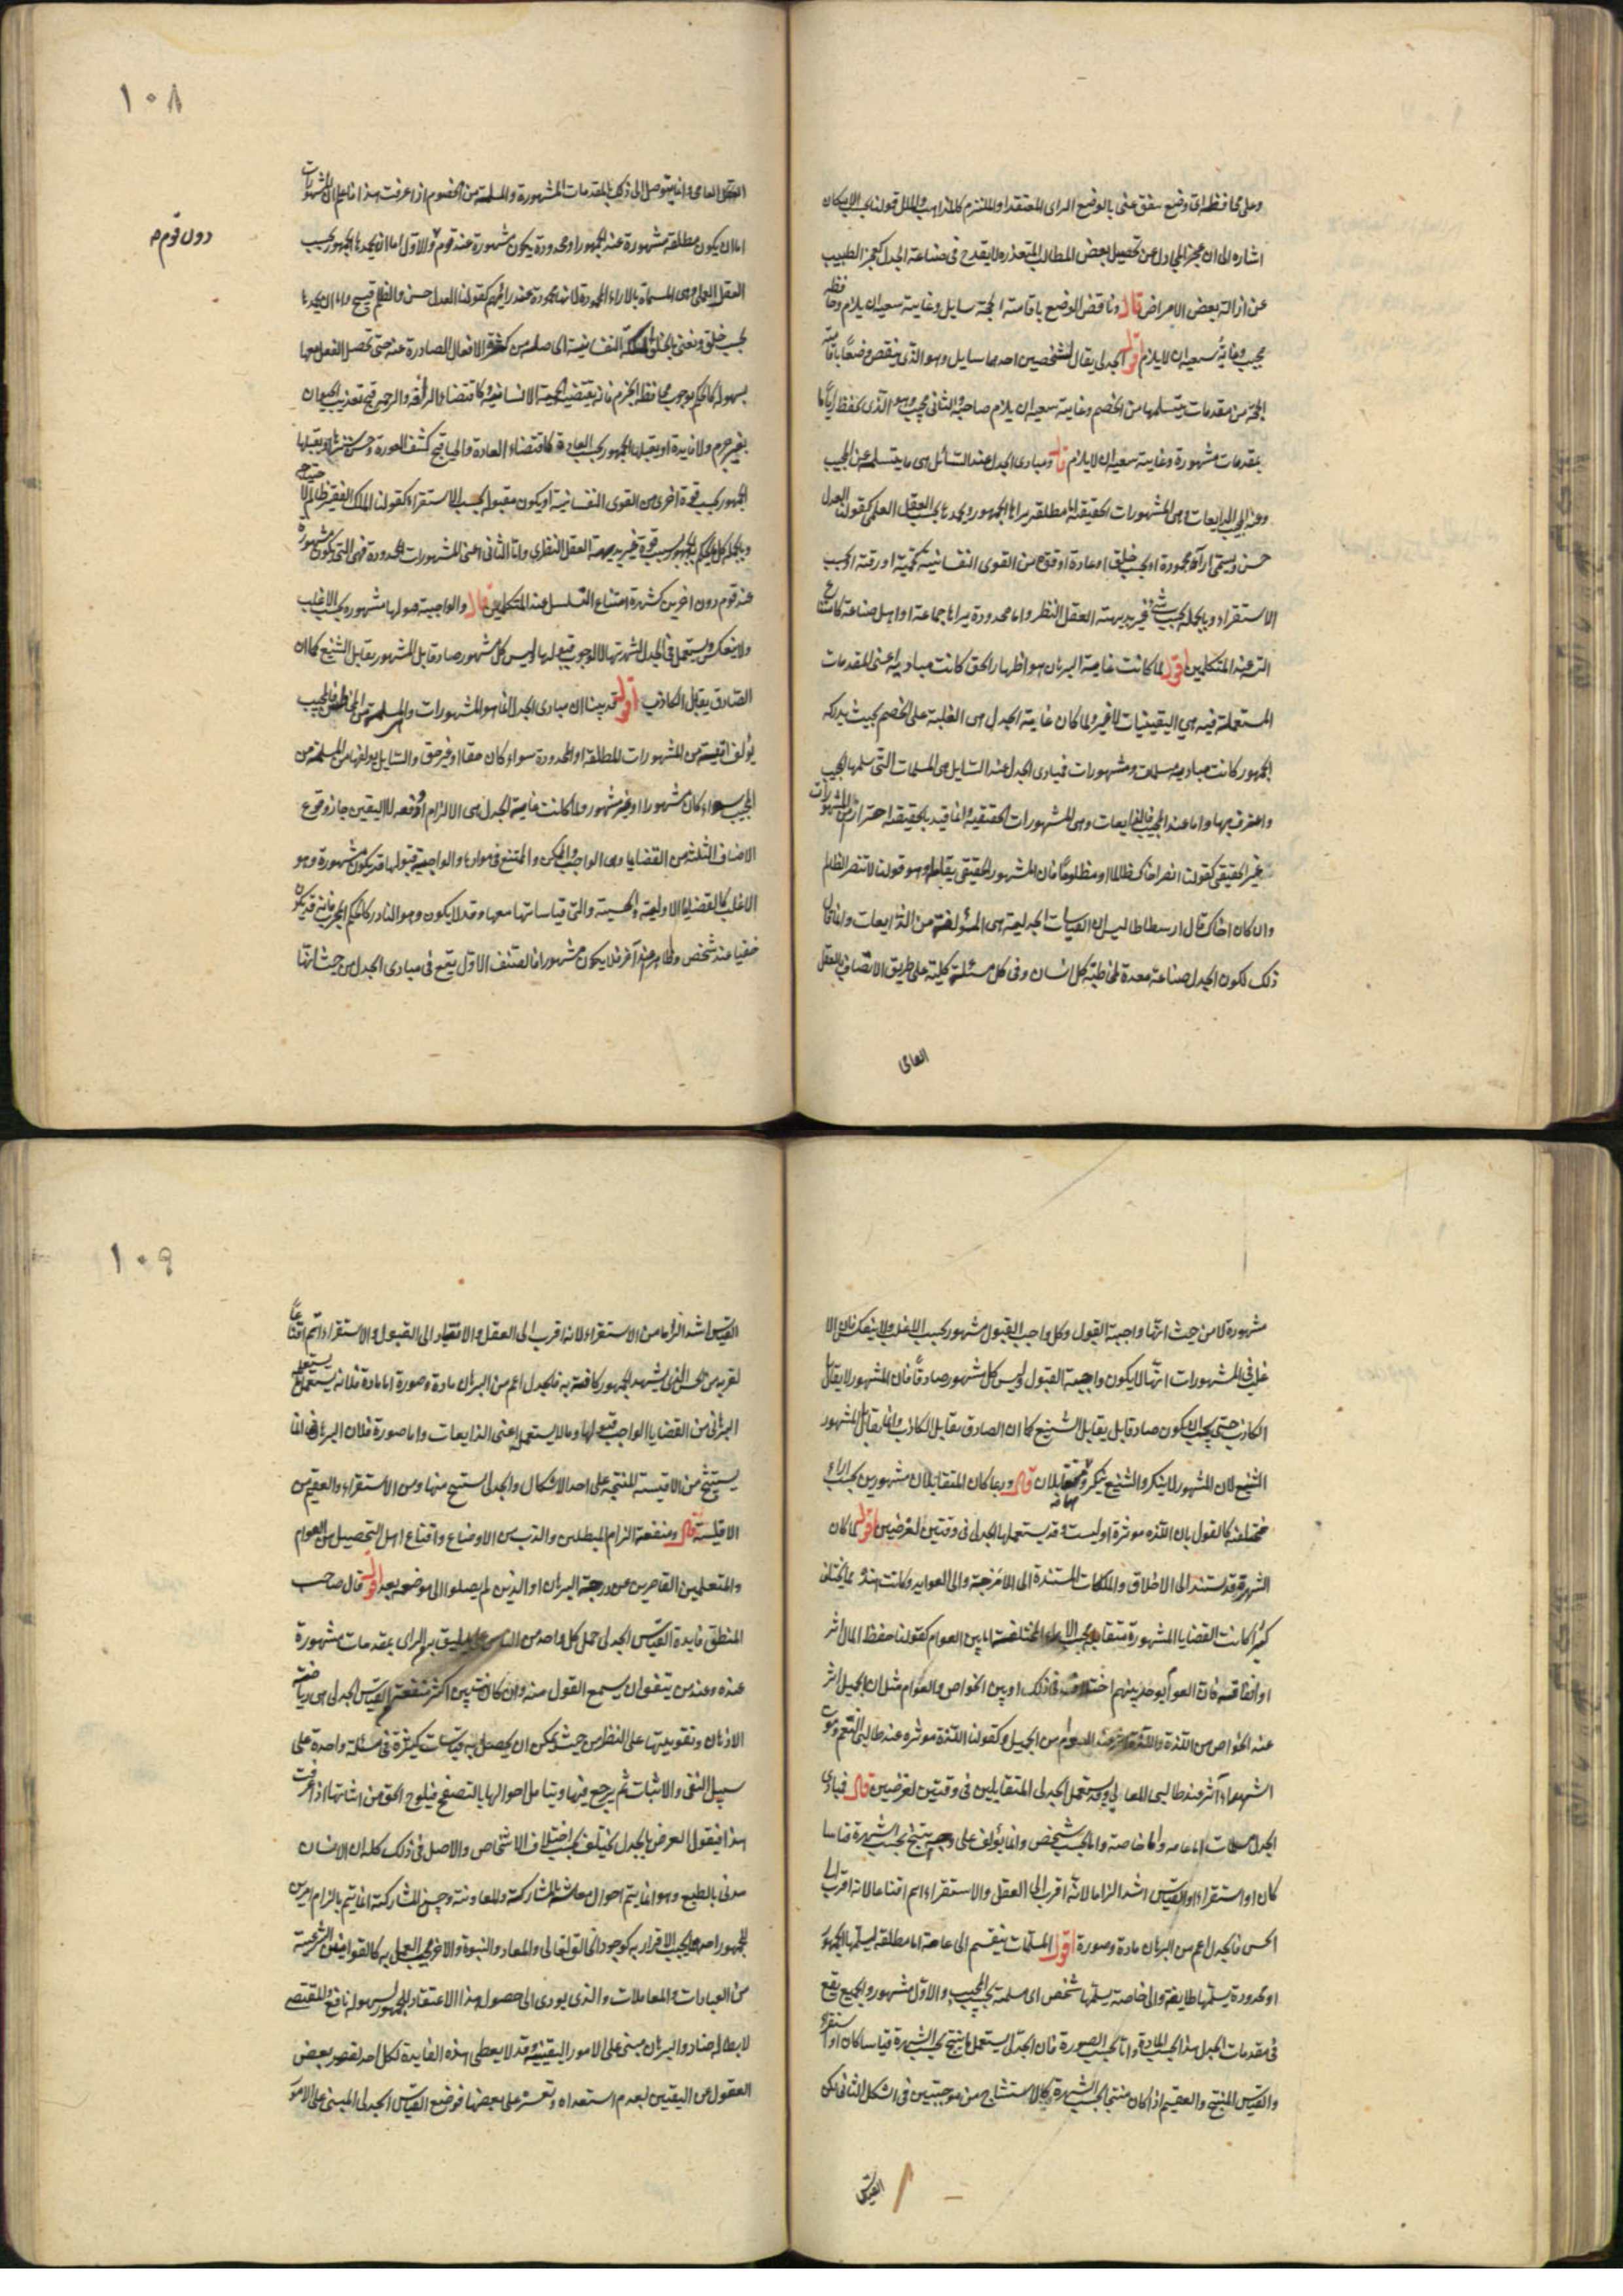 وعلى محافظة اى وضع يتفق عنى بالوضع الراى المعتقد او الملتزم كالمذاهب والملل قولنا بحسب الامكان
اشاره الى ان عجز المجادل عن تحصيل بعض المطالب المتعذره لا يقدح فى صناعة الجدل كعجز الطبيب
عن ازالة بعض الامراض قال وناقض الوضع باقامة الحجة سايل وغاية سعيه ان يلزم وحافظه
مجيب وغاية سعيه ان لا يلزم اقول الجدلى يقال لشخصين احدهما سايل وهو الذى ينقض وضعًا باقامة
الحجة من مقدمات يتسلمها من الخصم وغاية سعيه ان يلزم صاحبه والثانى مجيب وهو الذى يحفظ رايًا ما
بمقدمات مشهورة وغاية سعيه ان لا يلزم قال ومبادى الجدل عند السائل هى ما يتسلمه عن المجيب
وعند المجيب الذايعات وهى المشهورات الحقيقة اما مطلقة يراها الجمهور ويحمدها بحسب العقل العملى كقولنا العدل
حسن ويسمى ارآء محمودة او بحسب خلق او عادة او قوة من القوى النفسانية كحمية او رقة او بحسب
الاستقراء وبالجملة بحسب شئ غير بديهة العقل النظر واما محدودة يراها جماعة او اهل صناعة كامتناع
التسـ عند المتكلمين اقول لما كانت غاية البرهان هو اظهار الحق كانت مباديه اعنى المقدمات
المستعملة فيه هى اليقينيات لا غير ولما كان غاية الجدل هى الغلبة على الخصم بحيث يدركه
الجمهور كانت مباديه مسلمات ومشهورات فمبادى الجدل عند السايل هى المسلمات التى سلمها المجيب
واعترف بها واما عند المجيب فالذايعات وهى المشهورات الحقيقية وانما قيد بالحقيقة احترازا من المشهورات
غير الحقيقى كقولنا انصر اخاك ظالما او مظلومًا فان المشهور الحقيقى يقابله وهو قولنا لا تنصر الظالم
وان كان اخاك قال ارسطاطاليس ان القياسات الجدلية هى المؤلفة من الذايعات وانما قال
ذلك لكون الجدل صناعة معدة لمخاطبة كل انسان وفى كل مسئلة كلية على طريق الانصاف بالعقل
العامى
١٠٨
العقل العامى وانما يتوصل الى ذلك بالمقدمات المشهورة والمسلمة من الخصوم اذا عرفت هذا فاعلم ان المشهورات
اما ان يكون مطلقة مشهورة عند الجمهور او محدودة يكون مشهورة عند قوم والاول اما ان يحمدها الجمهور بحسب
دون قوم صح
العقل العملى وهى المسماة بالاراء المحمودة لانها محمودة عند رايهم كقولنا العدل حسن والظلم قبيح واما ان يحمدها
بحسب خلق ونعنى بالخلق الملكة النفسانية الحاصلة من كثرة الافعال الصادرة عنه حتى تحصل الفعل معها
بسهولة كالحكم بوجوب محافظة الحرم فانه يقتضيه الحمية الانسانية وكاقتضاء الرأفة والرحمة قبح تعذيب الحيوان
بغير جرم ولا فايدة او يقبلها الجمهور بحسب العادة كاقتضاء العادة والحياء قبح كشف العورة وحسن سترها او يقبلها
الجمهور بحسب قوة اخرى من القوى النفسانية او يكون مقبولة بحسب الاستقراء كقولنا الملك الفقير ظالم لاحتياجه
وبالجملة كل ما يحكم به الجمهور بسبب قوة غير بديهية العقل النظرى واما الثانى اعنى المشهورات المحدودة فهى التى تكون مشهورة
عند قوم دون اخرين كشهرة امتناع التسلسل عند المتكلمين قال والواجبة قبولها مشهورة بحسب الاغلب
ولا ينعكس ويستعمل فى الجدل لشهرتها لا لوجوب قبولها وليس كل مشهور صادقا بل المشهور يقابل الشنيع كما ان
الصادق يقابل الكاذب اقول قد بينا ان مبادى الجدل انما هو المشهورات والمسلمة من المخاطب فالمجيب
يؤلف اقيسة من المشهورات المطلقة او المحدودة سواء كان حقا او غير حق والسايل يولفها من المسلمة من
المجيب سواء كان مشهورا او غير مشهور ولما كانت غاية الجدل هى الالزام او دفعه لا اليقين جاز وقوع
الاصناف الثلثة من القضايا وهى الواجب والممكن والممتنع فى موادها والواجبة قبولها قد يكون مشهورة وهو
الاغلب كالقضايا الاولية والحسية والتى قياساتها معها وقد لا يكون وهو النادر كالحكم التجربى فانه قد يكون
خفيا عند شخص وظاهرا عند آخر فلا يكون مشهورا فالصنف الاول يقع فى مبادى الجدل من حيث انها
مشهورة لا من حيث انها واجبة القبول وكل واجب القبول مشهور بحسب الاغلب ولا ينعكس فان الا
غلب فى المشهورات انها لا يكون واجبة القبول وليس كل مشهور صادقًا فان المشهور لا يقابل
الكاذب حتى يجب ان يكون صادقا بل يقابل الشنيع كما ان الصادق يقابل الكاذب وانما يقابل المشهور
الشنيع لان المشهور لا ينكر والشنيع ينكر فهما متقابلان قال وربما كان المتقابلان مشهورين بحسب اراء
مختلفة كالقول بان اللذه موثرة او ليست وقد يستعملها الجدلى فى وقتين لغرضين اقول لما كان
الشهرة قد تستند الى الاخلاق والملكات المستندة الى الامزجة والى العوايد وكانت هذه مما يختلف
كثيرا كانت القضايا المشهورة متقابلة بحسب الاراء المختلفة اما بين العوام كقولنا حفظ المال اثر
او انفاقه فان العوام يوجد بينهم اختلاف فى ذلك او بين الخواص والعوام مثل ان الجميل اثر
عند الخواص من اللذة واللذة اثر عند العوام من الجميل وكقولنا اللذة موثره عند طالبى التنعم وموت
الشهداء آثر عند طالبى المعالى وقد يستعمل الجدلى المتقابلين فى وقتين لغرضين قال فمبادى
الجدل مسلمات اما عامه واما خاصة واما بحسب شخص وانما يؤلف على وجه ينتج بحسب الشهرة قياسا
كان او استقراء والقياس اشد الزاما لانه اقرب الى العقل والاستقراء اتم اقناعا لانه اقرب الى
الحس فالجدل اعم من البرهان مادة وصورة اقول المسلمات ينقسم الى عامة اما مطلقة يسلمها الجمهور
او محدودة يسلمها طايفة والى خاصة يسلمها شخص اى مسلمة بحسب المجيب والاول مشهور والجميع يقع
فى مقدمات الجدل هذا بحسب المادة واما بحسب الصورة فان الجدلى يستعمل ما ينتج بحسب الشهرة قياسا كان او استقراء
والقياس المنتج والعقيم اذا كان منتجا بحسب الشهرة كالاستنتاج من موجبتين فى الشكل الثانى لكن
القياس
١٠٩
القياس اشد الزاما من الاستقراء لانه اقرب الى العقل والانقياد الى القبول والاستقراء اتم اقناعًا
لقربه من الحس الذى يشهد الجمهور كافة به فالجدل اعم من البرهان مادة وصورة اما مادة فلانه يستعمل ما يستعمله
البرهانى من القضايا الواجب قبولها وما لا يستعمله اعنى الذايعات واما صورة فلان البرهانى انما
يستنتج من الاقيسة المنتجة على احد الاشكال والجدلى يستنتج منها ومن الاستقراء والعقيم من
الاقيسة قال ومنفعة الزام المبطلين والذب عن الاوضاع واقناع اهل التحصيل من العوام
والمتعلمين القاصرين عن درجة البرهان او الذين لم يصلوا الى موضعه بعد اقول قال صاحب
المنطق فايدة القياس الجدلى حمل كل واحد من الناس على ما يليق به الراى بمقدمات مشهورة
عنده وعند من يتفق ان يسمع القول منه وان كان اكثر منفعته القياس الجدلى هى رياضة
الاذهان وتقويتها على النظر من حيث يمكن ان يحصل به قياسات كثيرة فى مسئلة واحدة على
سبيل النفى والاثبات ثم يرجع فيها ويتامل احوالها بالتصفح فيلوح الحق من اثنائها اذا عرفت
هذا فنقول الغرض بالجدل يختلف بحسب اختلاف الاشخاص والاصل فى ذلك كله ان الانسان
مدنى بالطبع وهو انما يتم احوال معاشه بالمشاركة والمعاونة وحسن المشاركة انما يتم بالزام امرين
للجمهور احدهما يجب الاقرار به كوجود الخالق تعالى والمعاد والنبوة والاخر يجب العمل به كالقوانين الشرعية
من العبادات والمعاملات والذى يودى الى حصول هذا الاعتقاد للجمهور بسهولة نافع والمقتضى
لابطاله ضار والبرهان مبنى على الامور اليقينية وقد لا يعطى هذه الفايدة لكل احد لقصور بعض
العقول عن اليقين لعدم استعداده وتعسره على بعضها فوضع القياس الجدلى المبنى على الامور